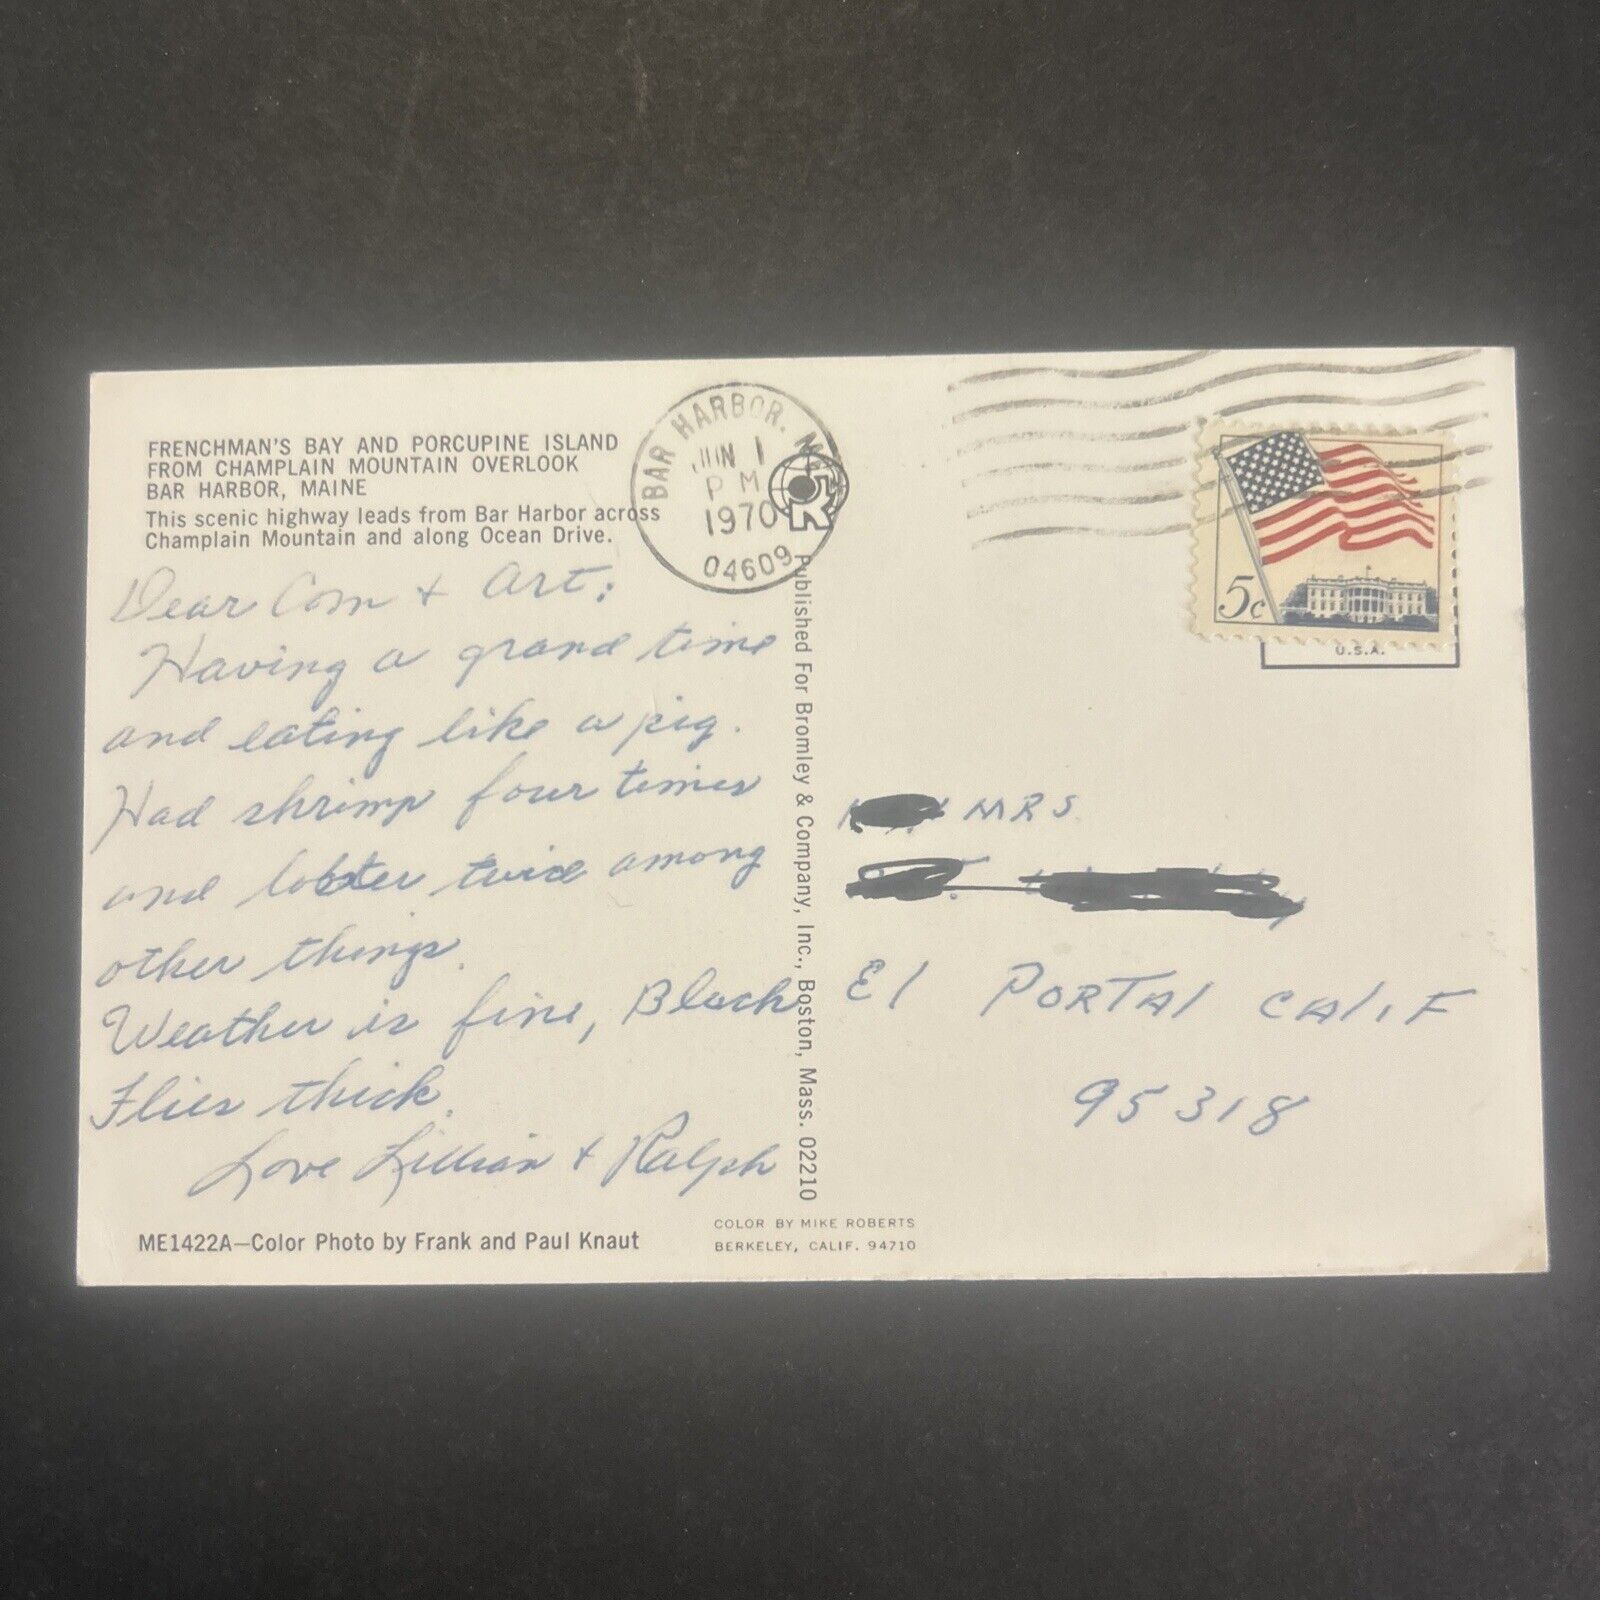 FRENCHMAN'S BAY AND PORCUPINE ISLAND
FROM CHAMPLAIN MOUNTAIN OVERLOOK
BAR HARBOR, MAINE
This scenic highway leads from Bar Harbor across
Champlain Mountain and along Ocean Drive.
Dear Com + Art:
Having a grand time
and eating like a pig.
Had shrimp four times
and lobster twice among
other things.
Weather is fine, Black
Flies thick.
Love Lillian + Ralph
ME1422A—Color Photo by Frank and Paul Knaut
BAR HARBOR,
JUN 1
PM
1970
04609
Published For Bromley & Company, Inc., Boston, Mass. 02210
COLOR BY MIKE ROBERTS
BERKELEY, CALIF. 94710
5c
U.S.A.
MRS
El PORTAl CAlIF
95318